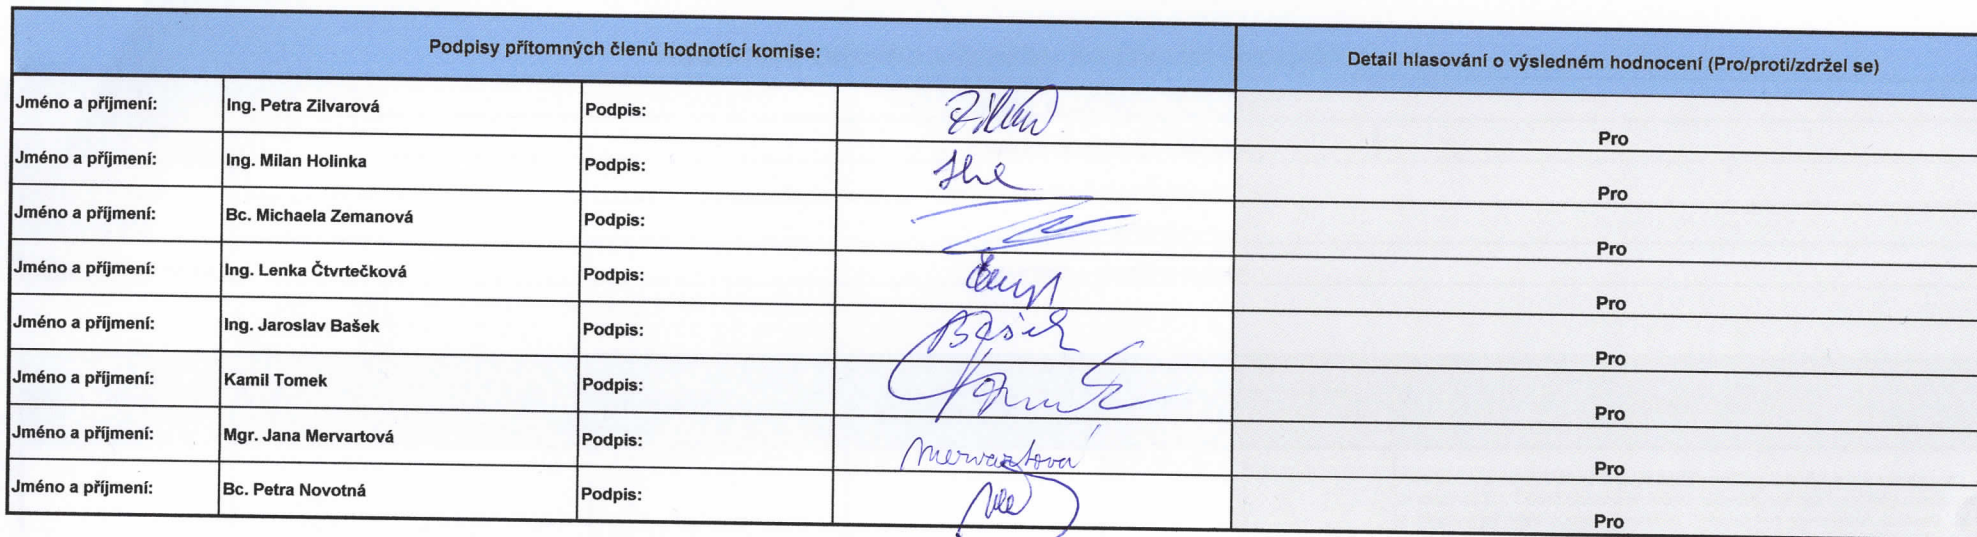 Podpisy přítomných členů hodnotící komise: Detail hlasování o výsledném hodnocení (Pro/proti/zdržel se)
Jméno a příjmení: Ing. Petra Zilvarová Podpis: Pro
Jméno a příjmení: Ing. Milan Holinka Podpis: Pro
Jméno a příjmení: Bc. Michaela Zemanová Podpis: Pro
Jméno a příjmení: Ing. Lenka Čtvrtečková Podpis: Pro
Jméno a příjmení: Ing. Jaroslav Bašek Podpis: Bašek Pro
Jméno a příjmení: Kamil Tomek Podpis: Pro
Jméno a příjmení: Mgr. Jana Mervartová Podpis: Mervartová Pro
Jméno a příjmení: Bc. Petra Novotná Podpis: Pro